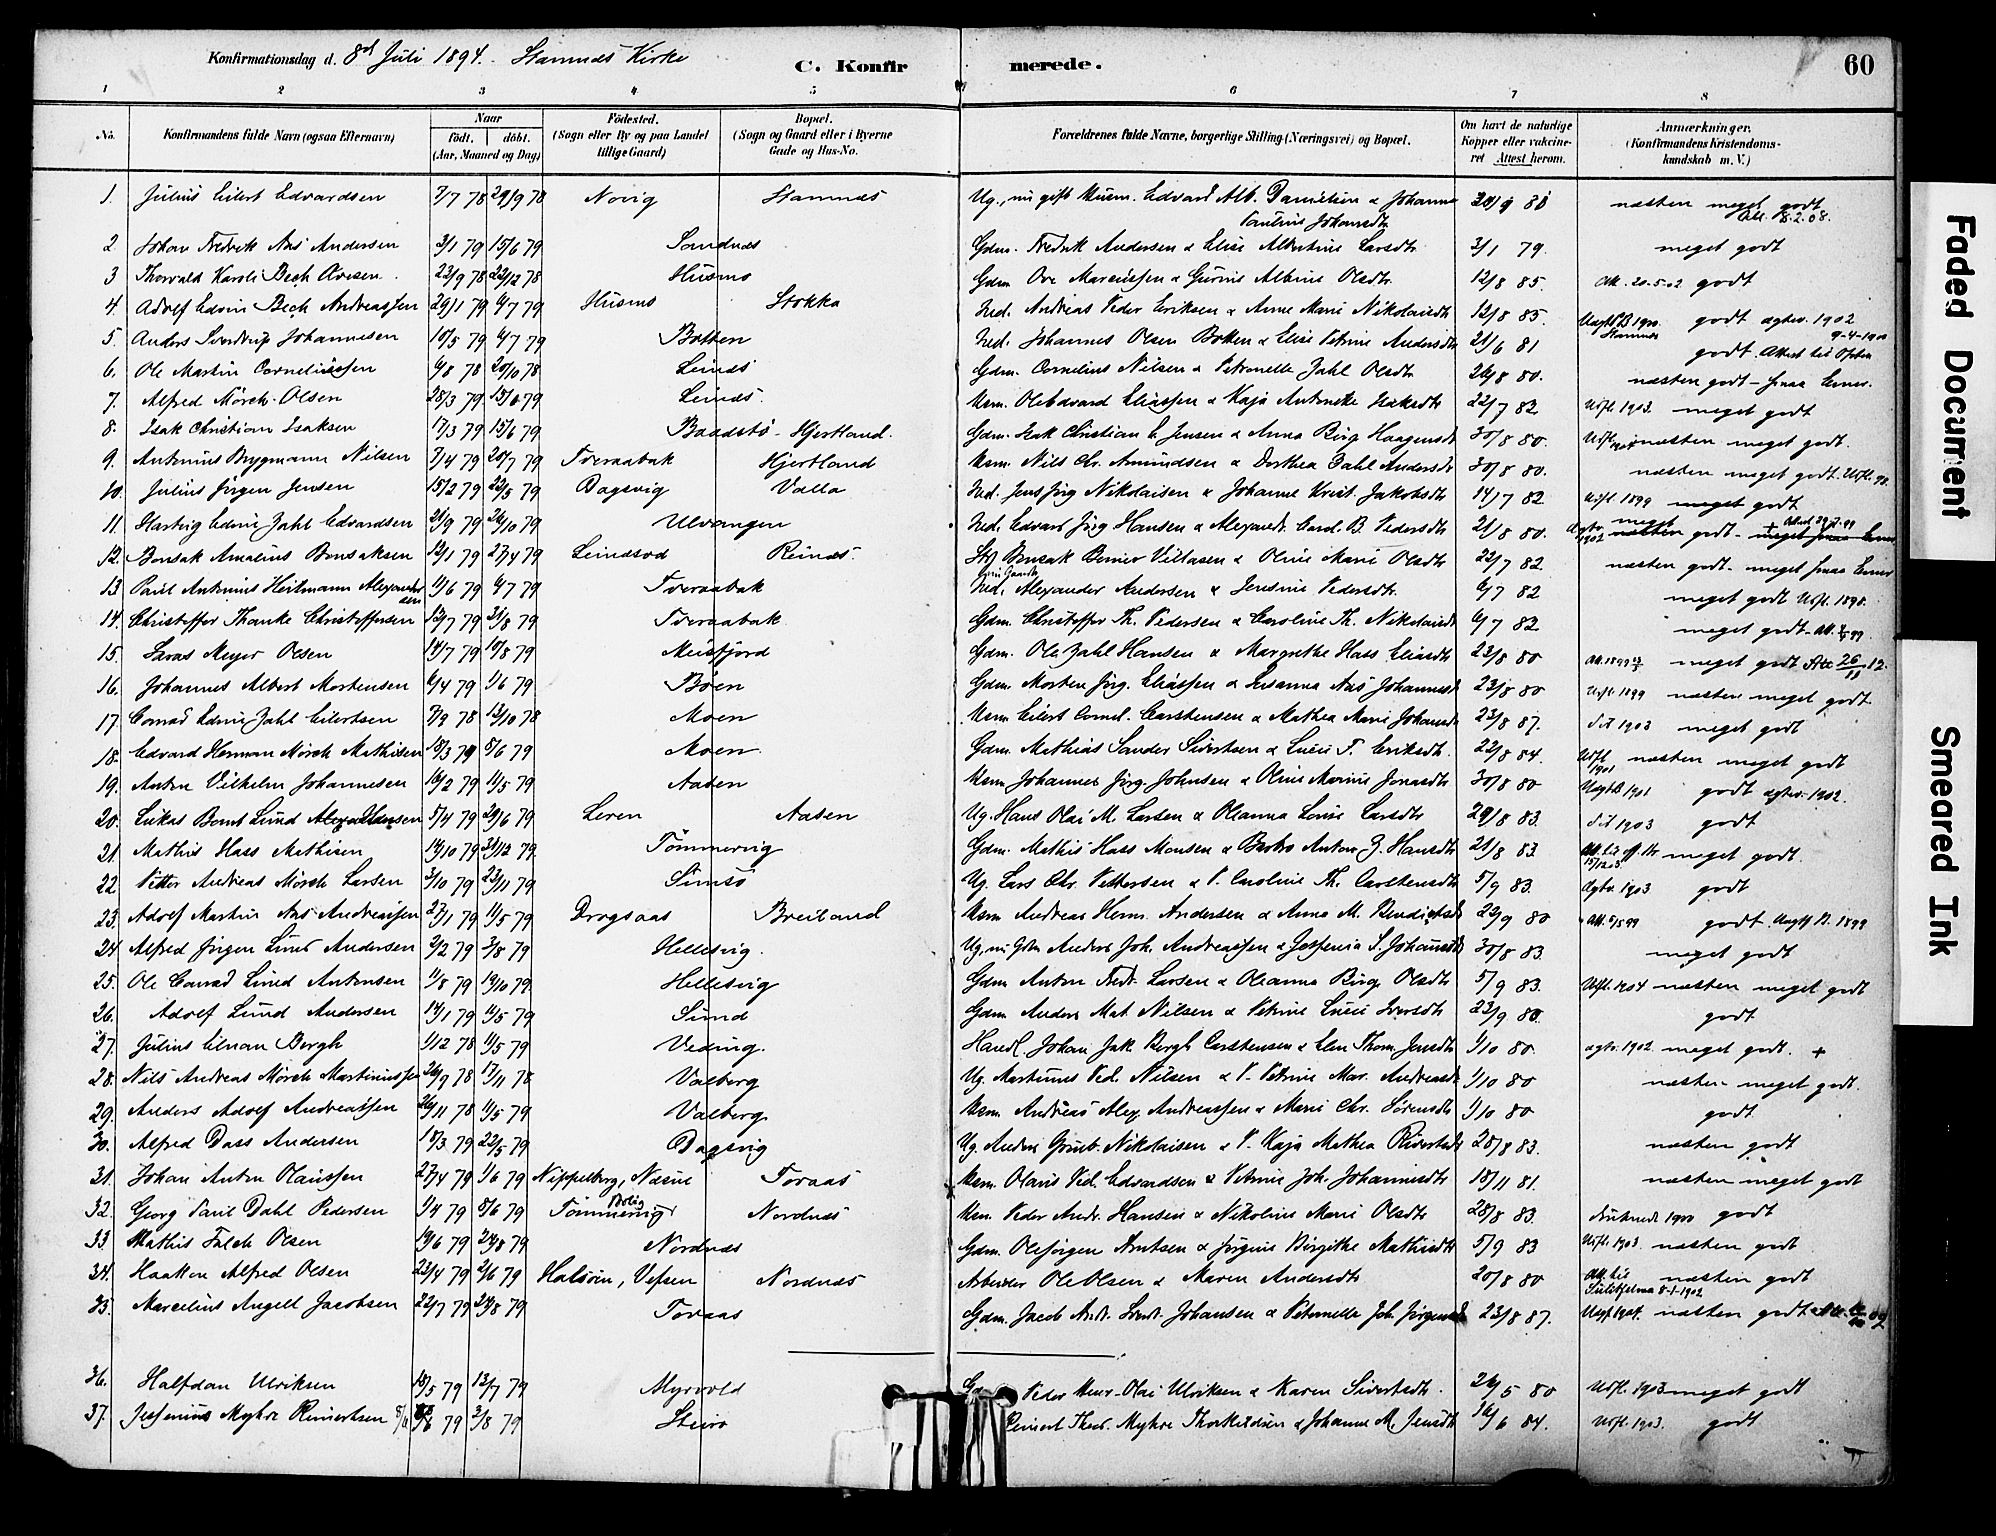 Konfirmationsdag d. 8de Juli 1894. Stamnes Kirke
C. Konfirmerede.
60
1 2 3 4 5 6 7 8
No. Konfirmandens fulde Navn (ogsaa Efternavn) Naar født. døbt. (Aar, Maaned og Dag) Fødested. (Sogn eller By og paa Landet tillige Gaard) Bopæl. (Sogn og Gaard eller i Byerne Gade og Hus-No. Forældrenes fulde Navne, borgerlige Stilling (Næringsvei) og Bopæl. Om havt de naturlige Kopper eller vakcineret Attest herom. Anmærkninger. (Konfirmandens Kristendomskundskab m. V.)
1. Julius Eilert Edvardsen 7/7 78 29/9 78 Novig Stamnes Ug., nu gift Husm. Edvard Alb. Danielsen & Johanna Pauline Johansdtr næsten meget godt Att. 8.2.08.
2 Johan Fredrik Aas Andersen 3/1 79 15/6 79 Sandnes Gdm. Fredrik Andersen & Elise Albertine Larsdtr 3/1 79. meget godt
3 Thorvald Karoli Bech Ovesen 23/9 78 22/12 78 Husmo Gdm Ove Marcussen & Gurine Albine Olsdtr 12/8 85. Att. 20.5.02 godt
4. Adolf Edvin Bech Andreassen 29/1 79 4/7 79 Husmo Stokka Ind. Andreas Peder Eriksen & Anne Marie Nikolaisdtr 12/8 85. godt agtv. 1902
5. Anders Sverdrup Johannesen 10/5 79 4/7 79 Botten Ind. Johannes Olsen Botten & Elise Petrine Andersdtr 21/6 81 godt. Attest til 9-4-1900
6. Ole Martin Corneliussen 4/8 78 20/10 78 Leines Gdm. Cornelius Nilsen & Petronelle Zahl Olsdtr 26/8 80. næsten godt - smaa Evner.
7. Alfred Mörch Olsen 28/3 79 15/6 79 Leines. Husm. Ole Edvard Eliassen & Kaja Antonette Isaksdtr 22/7 82 Udfl. 1903. meget godt
8. Isak Christian Isaksen 17/3 79 15/6 79 Baadstö - Hjertland. Gdm. Isak Christian E. Jensen & Anna Berg Haagensdtr 30/8 80. Udfl. næsten meget godt.
9. Antonius Brygmann Nilsen 7/4 79 20/7 79 Tveraabak Hjertland Husm. Nils Chr. Amundsen & Dorthea Dahl Andersdtr 30/8 80. næsten meget godt. Udfl. 98.
10. Julius Jörgen Jensen 15/2 79 22/5 79 Dagsvig Valla Ind. Jens Jörg Nikolaisen & Johanne Krist. Jakobsdtr 14/7 82 Udfl. 1899 meget godt
11. Hartvig Edvin Zahl Edvardsen 21/9 79 26/10 79. Ulvangen Ind. Edvard Jörg Hansen & Alexandr. Carol. B. Pedersdtr 21/8 80. Agtv. 1902 meget næsten godt - meget smaa Evner
12. Bonsak Amalius Bonsaksen 12/1 79 27/4 79 Leinesod Reines Bonsak Berner Villasen & Oline Marie Olsdtr 22/7 82 næsten godt - meget smaa Evner
13. Paul Antonius Heitmann Alexandersen 11/6 79 4/7 79 Tveraabak Ind. Alexander Andersen & Jensine Pedersdtr. 4/7 82 meget godt Udfl. 1898.
14. Christoffer Thanke Christoffersen 12/7 79 31/8 79 Tveraabak. Gdm. Christoffer Th. Pedersen & Caroline Th. Nikolaisdtr 4/7 82 meget godt - Att. 99.
15. Lavas Meyer Olsen 14/7 79 10/8 79 Meisfjord Gdm. Ole Zahl Hansen & Margrethe Hass Eliasdtr 23/8 80 Att. 1899 meget godt Att 26/11 12.
16. Johannes Albert Mortensen 6/4 79 1/6 79 Böen Gdm. Morten Jörg. Eliassen & Susanna Aas Johannesdtr 23/8 80 Udfl. 1899 næsten meget godt
17. Conrad Edvin Zahl Eilertsen 7/9 78 13/10 78 Moen Husm Eilert Cornel. Carstensen & Mathea Marie Johansdtr 23/8 87. dit 1903 meget godt
18. Edvard Herman Mörch Mathisen 18/3 79 8/6 79 Moen. Gdm. Mathias Sander Sivertsen & Lucie T. Eriksdtr. 22/8 84. Udfl 1901 næsten meget godt
19. Anton Vilhelm Johannesen 16/2 79 11/5 79 Aasen Husm Johannes Jörg. Johnsen & Oline Marie Jonasdtr 30/8 80 1901 godt agtv. 1902.
20. Lukas Bernt Lund Alexandersen 5/4 79 29/6 79 Leren Aasen Ug. Hans Olai M. Larsen & Oleanna Lovise Larsdtr 29/8 83. dit 1903 godt
21. Mathis Hass Mathisen 14/10 79 31/12 79. Tömmervig Gdm. Mathis Hass Monsen & Anton Z. Hansdtr 21/8 83. meget godt.
22. Petter Andreas Mörch Larsen 3/10 79 23/11 79 Simsö Ug. Lars Chr. Pettersen & P. Caroline Th. Carstensdtr 5/9 83. Agtv. 1903 godt
23. Adolf Martin Aas Andreassen 27/1 79 11/5 79 Drogsaas Breiland Husm Andreas Herm. Andersen & Anna M. Benediktsdtr 23/9 80 godt.
24 Alfred Jörgen Lund Andersen 2/2 79 3/8 79 Hellesvig. Ug, nu Gdm Anders Joh. Andreassen & Jessenia S. Johansdtr 30/8 83. meget godt
25. Ole Conrad Lund Antonsen 11/8 79 19/10 79. Hellesvig Gdm Anton Fredr. Larsen & Oleanna Berg Olsdtr 5/9 83. Udfl. 1904 næsten meget godt
26. Adolf Lund Andersen 14/1 79 11/5 79 Sund Gdm Anders Mat. Nilsen & Petrine Lucie Iversdtr 23/9 80. godt
27. Julius Einan Bergh 1/12 78 11/5 79 Veding. Handl. Johan Jak. Bergh Carstensen & Elen Thom. Jensdtr 1/10 80. agtv. 1902. meget godt. +
28. Nils Andreas Mörch Martinussen 26/9 78 17/11 78 Valberg Ug. Martinus Ped. Nilsen & P. Petrine Mar. Andreasdtr 1/10 80 næsten meget godt.
29. Anders Adolf Andreassen 26/11 78 11/5 79 Valberg. Husm. Andreas Alex. Andreassen & Marie Chr. Sörensdtr 1/10 80 godt
30. Alfred Dass Andersen 18/3 79 22/5 79 Dagsvig Ug. Anders Grönb. Nikolaisen & P. Kaja Mathea Reiertsdtr 28/8 83. næsten godt
31. Johan Anton Olaussen 27/4 79 1/6 79 Nippelberg, Næsne Toraas Husm. Olaus Ped. Edvardsen & Petrine Joh. Johannesdtr 18/11 81. næsten meget godt
32. Georg Paul Dahl Pedersen 1/4 79 8/6 79 Tömmervig Nordnæs Husm. Peder Andr. Hansen & Nikoline Marie Olsdtr 28/8 83. druknede 1900 godt
33. Mathis Falch Olsen 19/6 79 24/8 79 Nordnæs Gdm. Ole Jörgen Arntsen & Jörgine Birgithe Mathisdtr 5/9 83 Udfl. 1903. næsten godt
34. Haakon Alfred Olsen 23/4 79 2/6 79 Halsöen, Vefsen Nordnæs Arbeider Ole Olsen & Maren Andersdtr 20/8 80 Att. til Sulitjelma 8-1-1902 næsten godt
35. Marcelius Angell Jacobsen 22/7 79 24/8 79 Toraas Gdm. Jacob Andr. Johansen & Petronelle Joh. Jörgensdtr 23/8 87. næsten godt
36. Halfdan Ulriksen 18/5 79 13/7 79 Myrvold Peder Henr. Olai Ulriksen & Karen Sivertsdtr. 26/5 80 Udfl. 1903 meget godt
37. Jessenius Myhre Reinertsen 79 3/8 79 Steiro Reinert Theod. Myhre Thorkildsen & Johanne M. Jensdtr 16/6 84. Udfl. 1903. godt
Faded Document
Smeared Ink